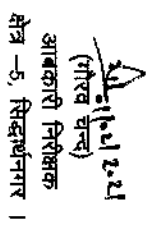 (गौरव चन्द)
आबकारी निरीक्षक
क्षेत्र -5, सिद्धार्थनगर ।